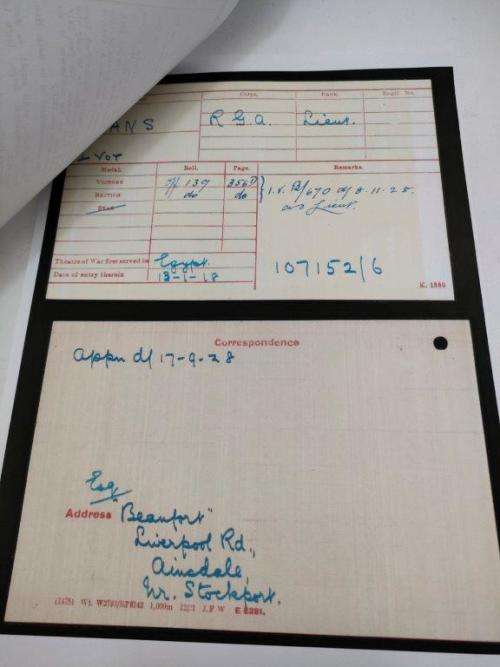 Corps. Rank. Regtl. No.
ANS R G A. Lieut.
Medal. Roll. Page. Remarks.
Victory 137 356
British do do I.V. B/670 d/8.11.25.
Star as Lieut.
Theatre of War first served in Egypt.
Date of entry therein 13-1-18
107152/6
K. 1380
Correspondence
Appn d/ 17-9-28
Esq
Address "Beaufort"
Liverpool Rd.,
Ainsdale,
Nr. Stockport.
1,000m J.F W E 2281.